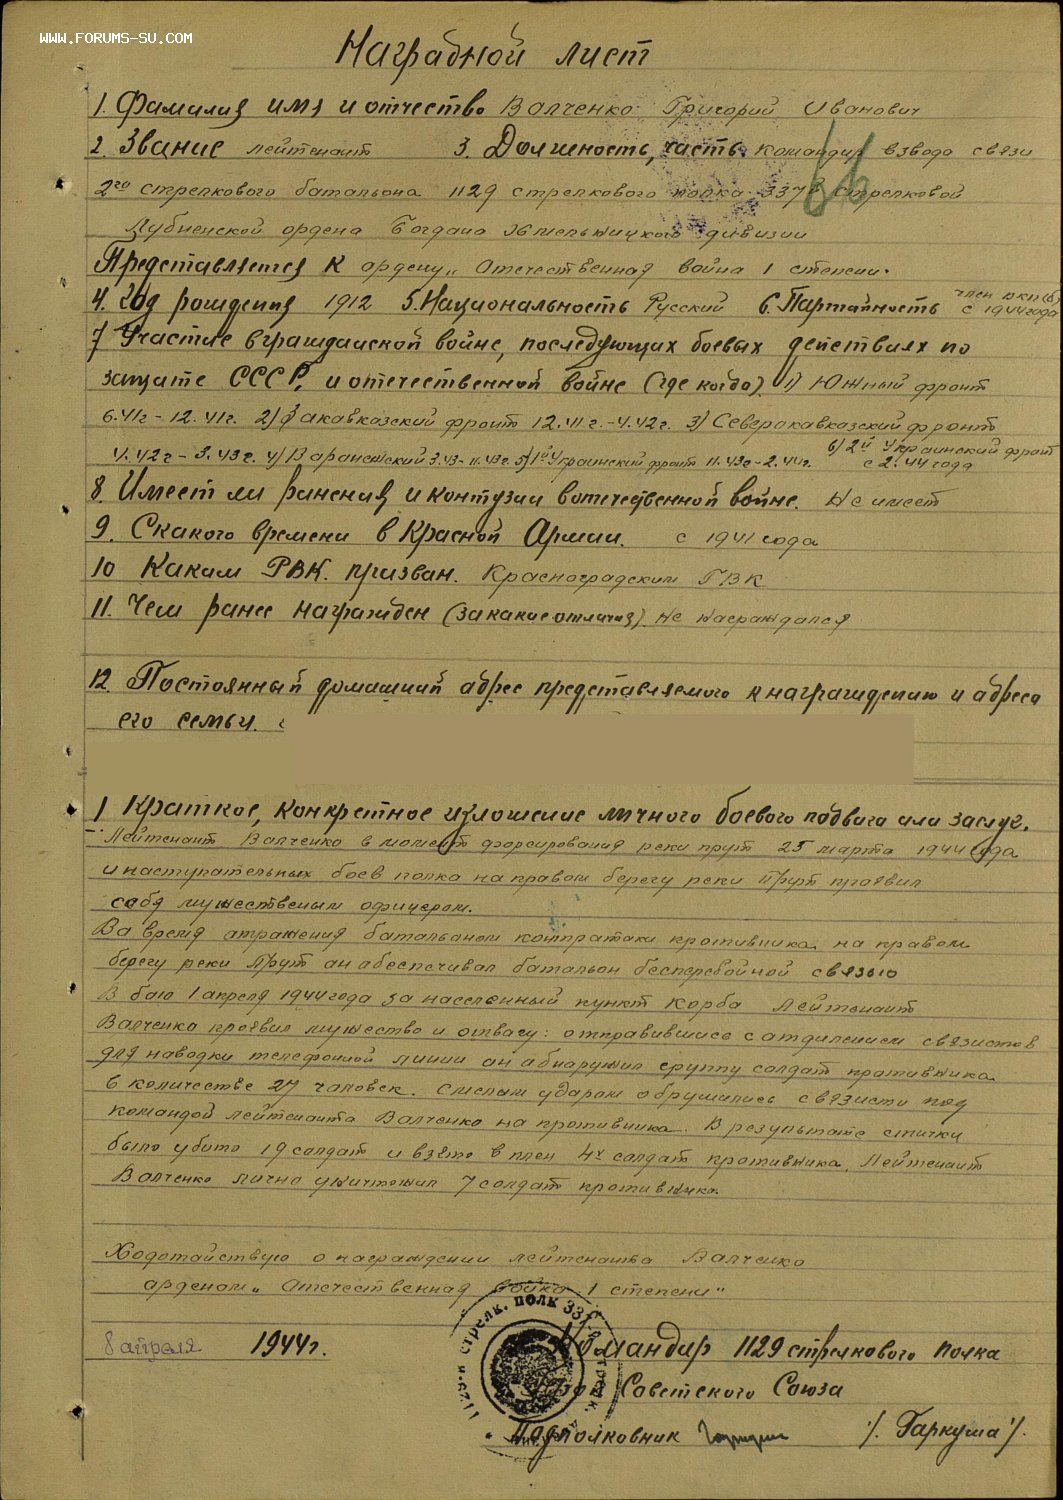 WWW.FORUMS-SU.COM
Наградной лист
1. Фамилия имя и отчество Валченко Григорий Иванович
2. Звание лейтенант 3. Должность, часть командир взвода связи
2го стрелкового батальона 1129 стрелкового полка 337й стрелковой
Лубненской ордена Богдана Хмельницкого дивизии
Представляется к ордену „Отечественная война 1 степени.
4. Год рождения 1912 5. Национальность Русский 6. Партийность член ВКП(б) с 1944 года
7 Участие в гражданской войне, последующих боевых действиях по
защите СССР, и отечественной войне (где когда). 1) Южный фронт
6.41г - 12.41г. 2) Закавказский фронт 12.41г. - 4.42г. 3) Северокавказский фронт
4.42г - 3.43г. 4) Варонежский 3.43 - 11.43г. 5) 1й Украинский фронт 11.43г - 2.44г. 6) 2й Украинский фронт с 2.44 года
8. Имеет ли ранения и контузии в отечественной войне. Не имеет
9. С какого времени в Красной Армии. с 1941 года
10 Каким РВК. призван. Красноградским ГВК
11. Чем ранее награжден (за какие отличия). не награждался
12. Постоянный домашний адрес представляемого к награждению и адреса
его семьи.
1 Краткое, конкретное изложение личного боевого подвига или заслуг.
Лейтенант Валченко в момент форсирования реки прут 25 марта 1944 года
и наступательных боев полка на правом берегу реки Прут проявил
себя мужественым офицером.
Во время отражения батальоном контратаки противника на правом
берегу реки Прут он абеспечивал батальон бесперебойной связью
В баю 1 апреля 1944 года за населенный пункт Корба Лейтенант
Валченко проявил мужество и отвагу: отправившись с атделением связистов
для наводки телефонной линии он абнаружил группу солдат противника
в количестве 27 человек. Смелым ударом обрушились связисты под
командой лейтенанта Валченко на противника. В результате стички
было убито 19 солдат и взято в плен 4х солдат противника. Лейтенант
Валченко лично уничтожил 7 солдат противника.
Ходотайствую о награждении лейтенанта Валченко
орденом „Отечественная война 1 степени"
8 апреля 1944г. Командир 1129 стрелкового полка
Герой Советского Союза
Подполковник /. Гаркуша /.